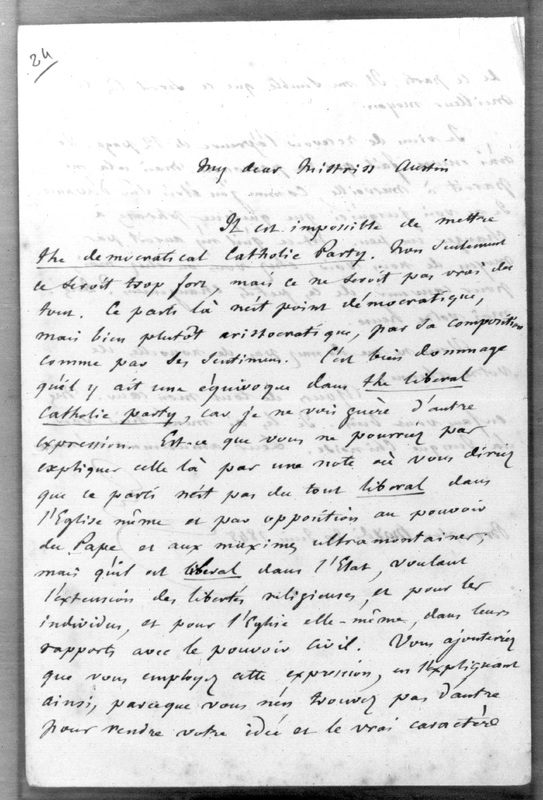 24
My dear Mistriss Austin
Il est impossible de mettre
the democratical Catholic Party. Non seulement
ce seroit trop fort, mais ce ne seroit pas vrai du
tout. Ce parti là n'est point démocratique,
mais bien plutôt aristocratique, par sa composition
comme par ses sentimens. C'est bien dommage
qu'il y ait une équivoque dans the liberal
Catholic party, car je ne vois guère d'autre
expression. Est-ce que vous ne pourriez pas
expliquer celle là par une note où vous diriez
que ce parti n'est pas du tout liberal dans
l'Eglise même et par opposition au pouvoir
du Pape et aux maximes ultramontaines,
mais qu'il est liberal dans l'Etat, voulant
l'extension des libertés religieuses, et pour les
individus, et pour l'Eglise elle-même, dans leurs
rapports avec le pouvoir civil. Vous ajouteriez
que vous employez cette expression, en l'expliquant
ainsi, parceque vous n'en trouvez pas d'autre
pour rendre votre idée et le vrai caractère